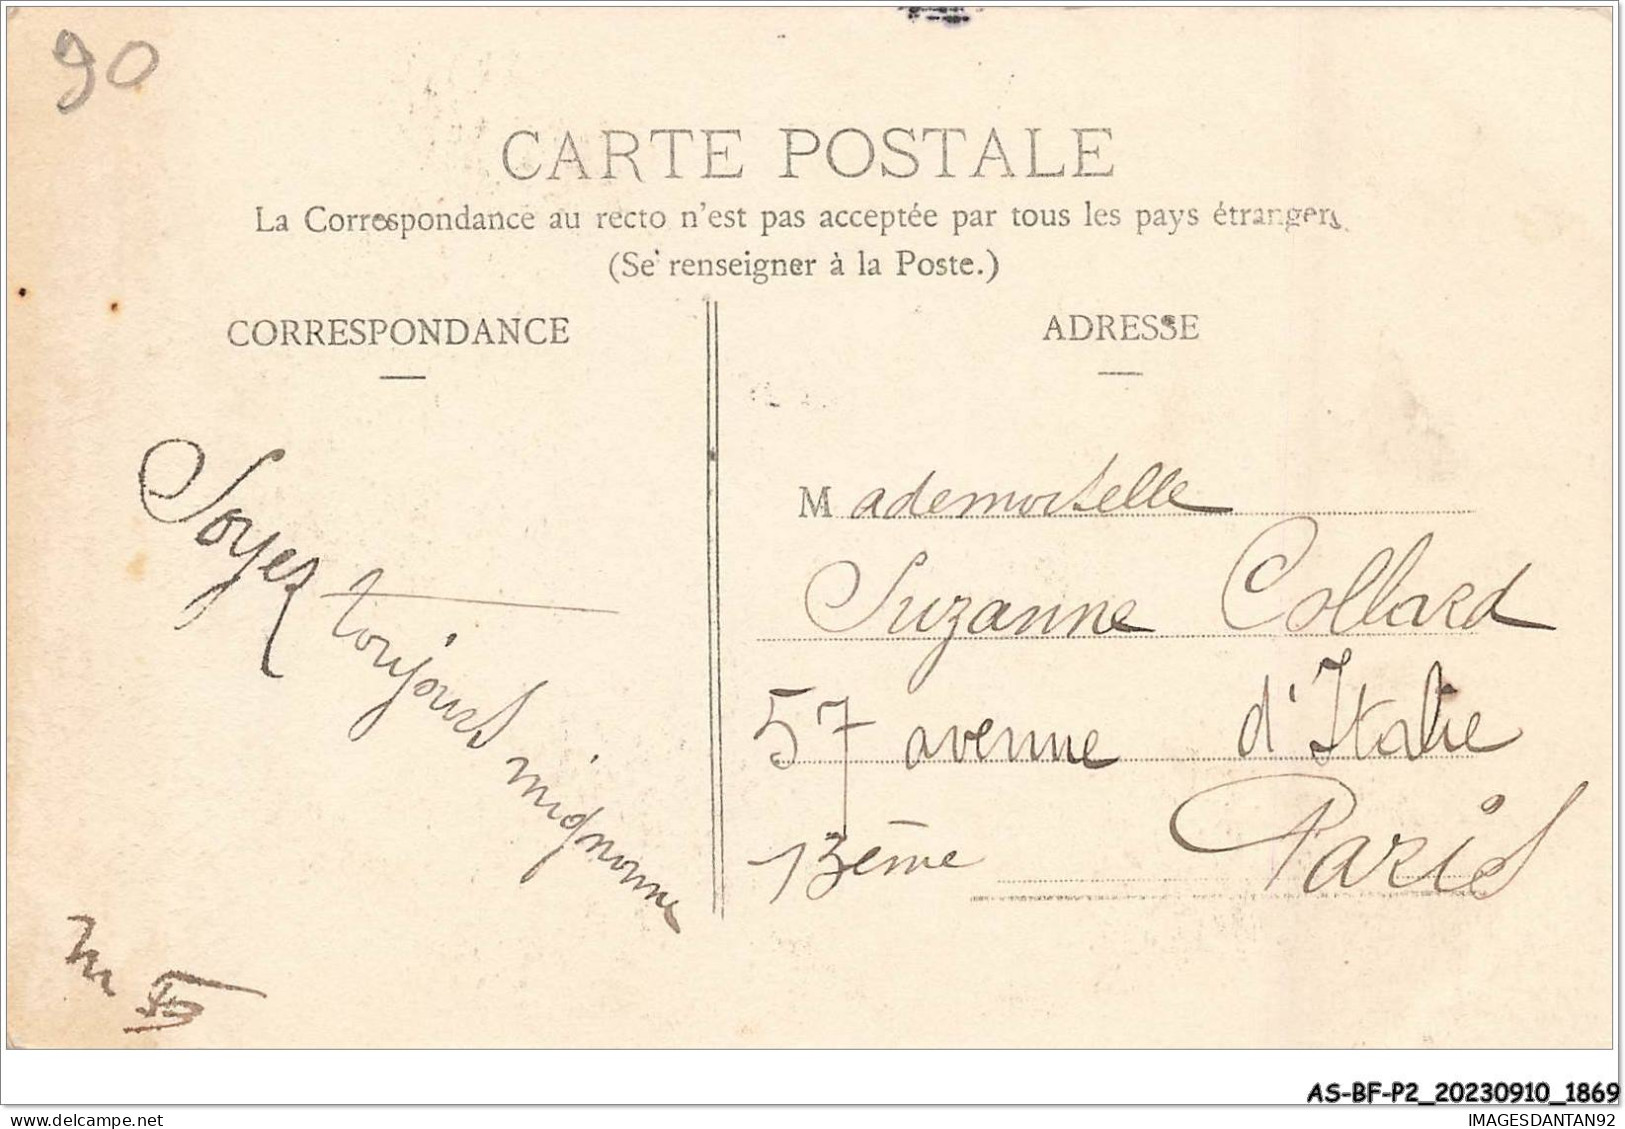 90
CARTE POSTALE
La Correspondance au recto n'est pas acceptée par tous les pays étrangers
(Se renseigner à la Poste.)
CORRESPONDANCE
Soyez toujours mignonne
ADRESSE
Mademoiselle
Suzanne Collard
57 avenue d'Italie
13ème Paris
AS-BF-P2_20230910_1869
IMAGESDANTAN92